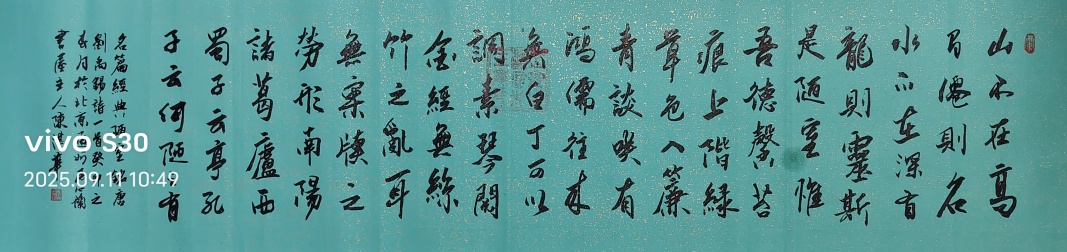 山不在高
有僊則名
水不在深有
龍則靈斯
是陋室惟
吾德馨苔
痕上階綠
草色入簾
青談笑有
鴻儒往來
無白丁可以
調素琴閱
金經無絲
竹之亂耳
無案牘之
勞形南陽
諸葛廬西
蜀子云亭孔
子云何陋之有
名篇經典陋室銘唐
劉禹錫詩一首癸卯之
春月於北京西山
書屋主人陳
vivo S30
2025.09.11 10:49